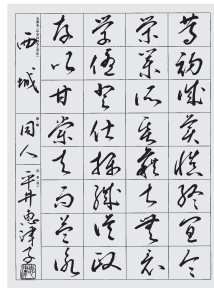 篤初誠美慎終宜令
榮業所基籍甚無竟
學優登仕攝職從政
存以甘棠去而益詠
西城 同人 平井恵津子